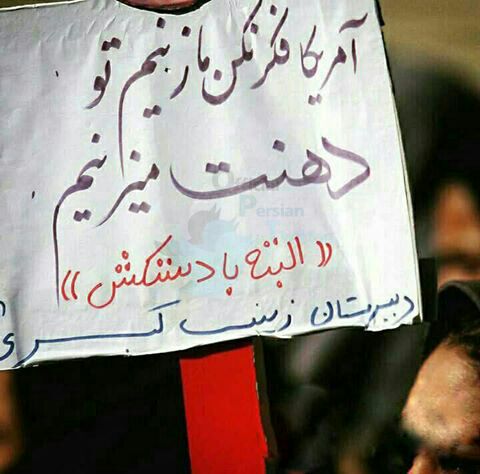 آمریکا فکر نکن ما زنیم تو
دهنت میزنیم
«البته با دستکش»
دبیرستان زینب کبری
Persian